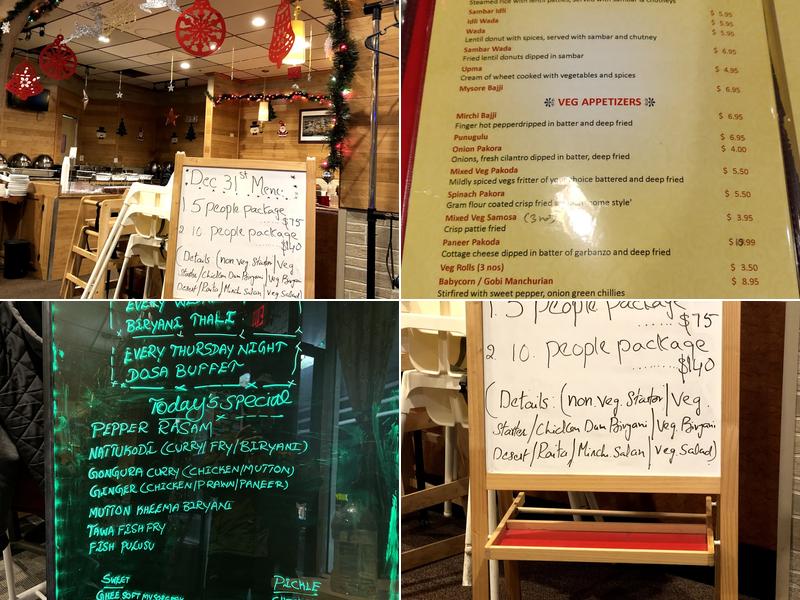 Dec 31st Menu:
1 5 people package
$75
2 10 people package
$140
(Details (non veg Starter/Veg
Starter/Chicken Dum Biryani/Veg Biryani
Desert/Raita/Mirch Salan/Veg Salad)
Steamed rice with lentil patties, served with sambar & chutneys
Sambar Idli $ 5.95
Idli Wada $ 5.95
Wada $ 5.95
Lentil donut with spices, served with sambar and chutney
Sambar Wada $ 6.95
Fried lentil donuts dipped in sambar
Upma $ 4.95
Cream of wheet cooked with vegetables and spices
Mysore Bajji $ 6.95
VEG APPETIZERS
Mirchi Bajji $ 6.95
Finger hot pepperdripped in batter and deep fried
Punugulu $ 6.95
Onion Pakora $ 4.00
Onions, fresh cilantro dipped in batter, deep fried
Mixed Veg Pakoda $ 5.50
Mildly spiced vegs fritter of your choice battered and deep fried
Spinach Pakora $ 5.50
Gram flour coated crisp fried home style'
Mixed Veg Samosa (3 nos) $ 3.95
Crisp pattie fried
Paneer Pakoda
Cottage cheese dipped in batter of garbanzo and deep fried
Veg Rolls (3 nos) $ 3.50
Babycorn / Gobi Manchurian $ 8.95
Stirfired with sweet pepper, onion green chillies
EVERY
BIRYANI THALI
EVERY THURSDAY NIGHT
DOSA BUFFET
Today's special
PEPPER RASAM
NATTUKODI (CURRY/FRY/BIRYANI)
GONGURA CURRY (CHICKEN/MUTTON)
GINGER (CHICKEN/PRAWN/PANEER)
MUTTON KHEEMA BIRYANI
TAWA FISH FRY
FISH PULUSU
SWEET PICKLE
GHEE SOFT MYSORE PAK
1. 5 people package
........ $75
2. 10. people package
........ $140
(Details: (non veg. Starter/Veg.
Starter/Chicken Dum Biryani/Veg Biryani
Desert/Raita/Mirch Salan/Veg Salad)